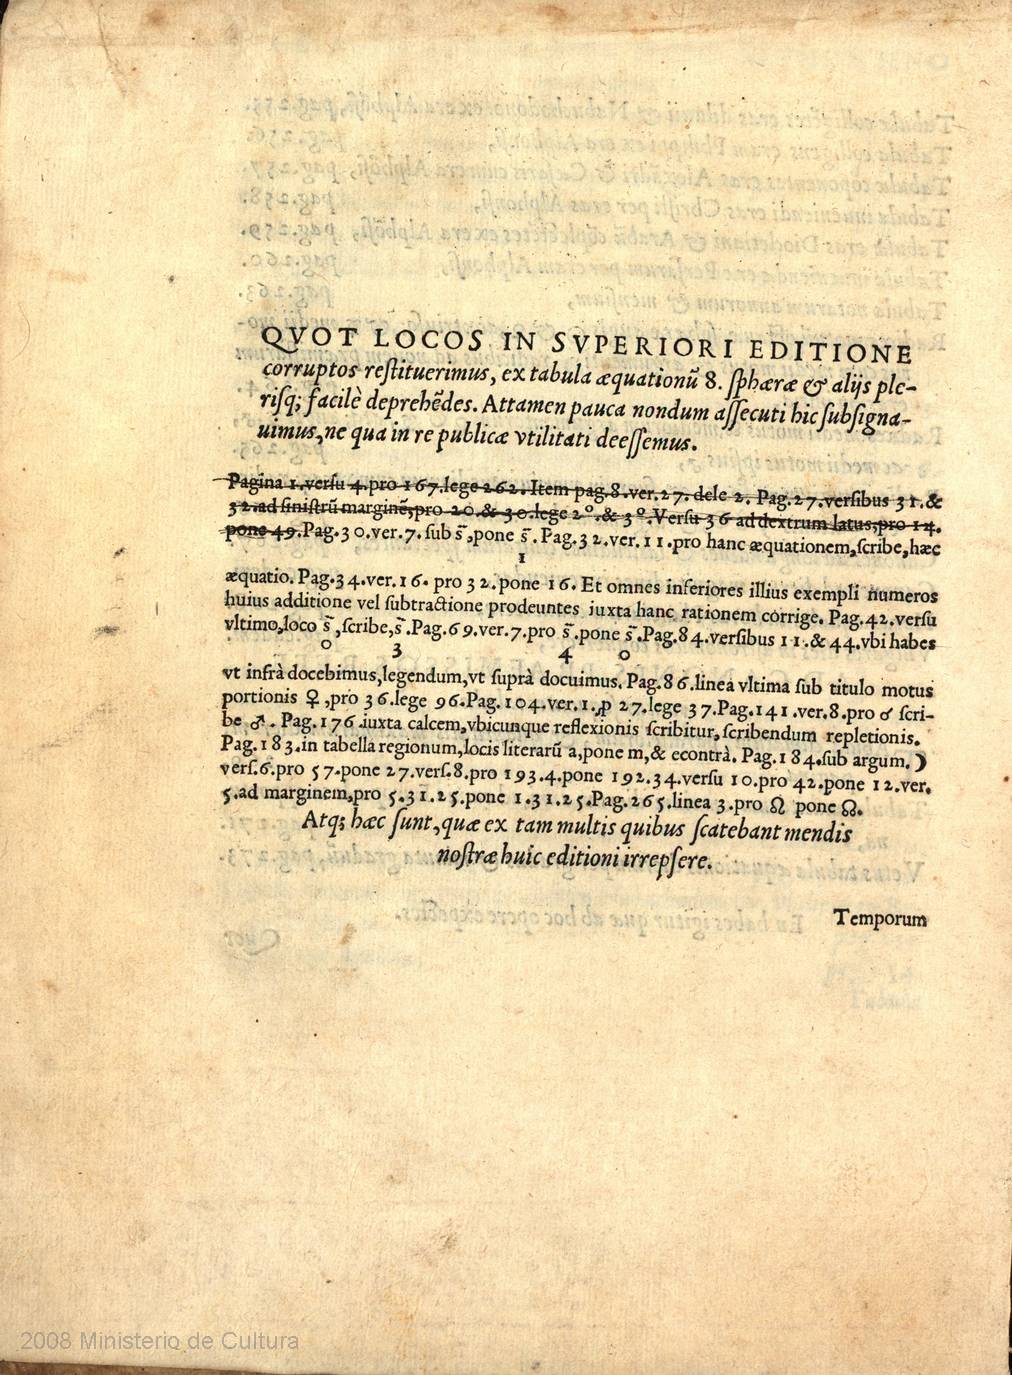 QVOT LOCOS IN SVPERIORI EDITIONE
corruptos reſtituerimus, ex tabula æquationũ 8. ſphæræ & alijs ple-
riſq; facilè deprehẽdes. Attamen pauca nondum aſſecuti hic ſubſigna-
uimus, ne qua in re publicæ vtilitati deeſſemus.
Pagina 1. verſu 4. pro 167. lege 262. Item pag. 8. ver. 27. dele 2. Pag. 27. verſibus 31. &
32. ad ſiniſtrũ marginẽ, pro 20. & 30. lege 2°. & 3°. Verſu 36 ad dextrum latus, pro 14.
pone 49. Pag. 30. ver. 7. ſub s̄, pone s̄. Pag. 32. ver. 11. pro hanc æquationem, ſcribe, hæc
1
æquatio. Pag. 34. ver. 16. pro 32. pone 16. Et omnes inferiores illius exempli numeros
huius additione vel ſubtractione prodeuntes iuxta hanc rationem corrige. Pag. 42. verſu
vltimo, loco s̄, ſcribe, s̄. Pag. 69. ver. 7. pro s̄. pone s̄. Pag. 84. verſibus 11. & 44. vbi habes
0 3 4 0
vt infrà docebimus, legendum, vt suprà docuimus. Pag. 86. linea vltima ſub titulo motus
portionis ♀, pro 36. lege 96. Pag. 104. ver. 1. ꝓ 27. lege 37. Pag. 141. ver. 8. pro ♂ ſcri-
be ♂. Pag. 176. iuxta calcem, vbicunque reflexionis ſcribitur, ſcribendum repletionis.
Pag. 183. in tabella regionum, locis literarũ a, pone m, & econtrà. Pag. 184. ſub argum. ☽
verſ. 6. pro 57. pone 27. verſ. 8. pro 193. 4. pone 192. 34. verſu 10. pro 42. pone 12. ver.
5. ad marginem, pro 5. 31. 25. pone 1. 31. 25. Pag. 265. linea 3. pro ☊ pone ☊.
Atq; hæc ſunt, quæ ex tam multis quibus ſcatebant mendis
noſtræ huic editioni irrepſere.
Temporum
2008 Ministerio de Cultura